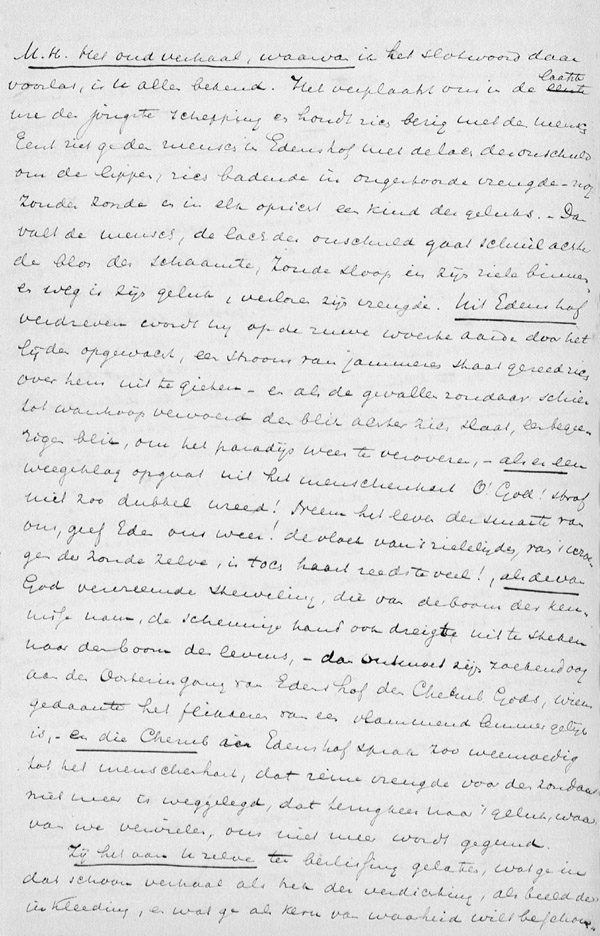 M.H. Het oud verhaal, waarvan ik het slotwoord daar
voorlas, is u allen bekend. Het verplaatst ons in de laatste
ure der jongste schepping en houdt zich bezig met den mensch
Eerst ziet ge den mensch in Edenshof met de lach der onschuld
om de lippen, zich badende in ongestoorde vreugde – nog
zonder zonde en in elk opzicht een kind des geluks. – Dan
valt de mensch, de lach der onschuld gaat schuil achter
de blos der schaamte, zonde sloop in zijn ziele binnen
en weg is zijn geluk, verloren zijn vreugde. Uit Edenshof
verdreven wordt hij op de ruwe woeste aarde door het
lijden opgewacht, een stroom van jammeren staat gereed zich
over hem uit te gieten – en als de gevallen zondaar schier
tot wanhoop vervoerd den blik achter zich slaat, een begee-
rigen blik, om het paradijs weer te veroveren, – als er een
weegeklag opgaat uit het menschenhart O! God! straf
niet zoo dubbel wreed! Neem het leven der smarte van
ons, geef Eden ons weer! de vloek van 't zielelijden, van 't
gen der zonde zelve, is toch haast reeds te veel!, als de van
God vervreemde sterveling, die van de boom der ken-
nisse nam, de schennige hand ook dreigt uit te steken
naar den boom des levens, – dan ontmoet zijn zoekend oog
aan den Oosteringang van Edenshof den Cherub Gods, wiens
gedaante het flikkeren van een vlammend lemmer gelijk
is, – en die Cherub aan Edenshof sprak zoo weemoedig
tot het menschenhart, dat reine vreugde voor den zondaar
niet meer is weggelegd, dat terugkeer naar 't geluk, waar
van we vervielen, ons niet meer wordt gegund.
Zij het aan u zelve ter beslissing gelaten, wat ge in
dat schoon verhaal als trek der verdichting, als beeld der
inkleeding, en wat ge als kern van waarheid wilt beschou-